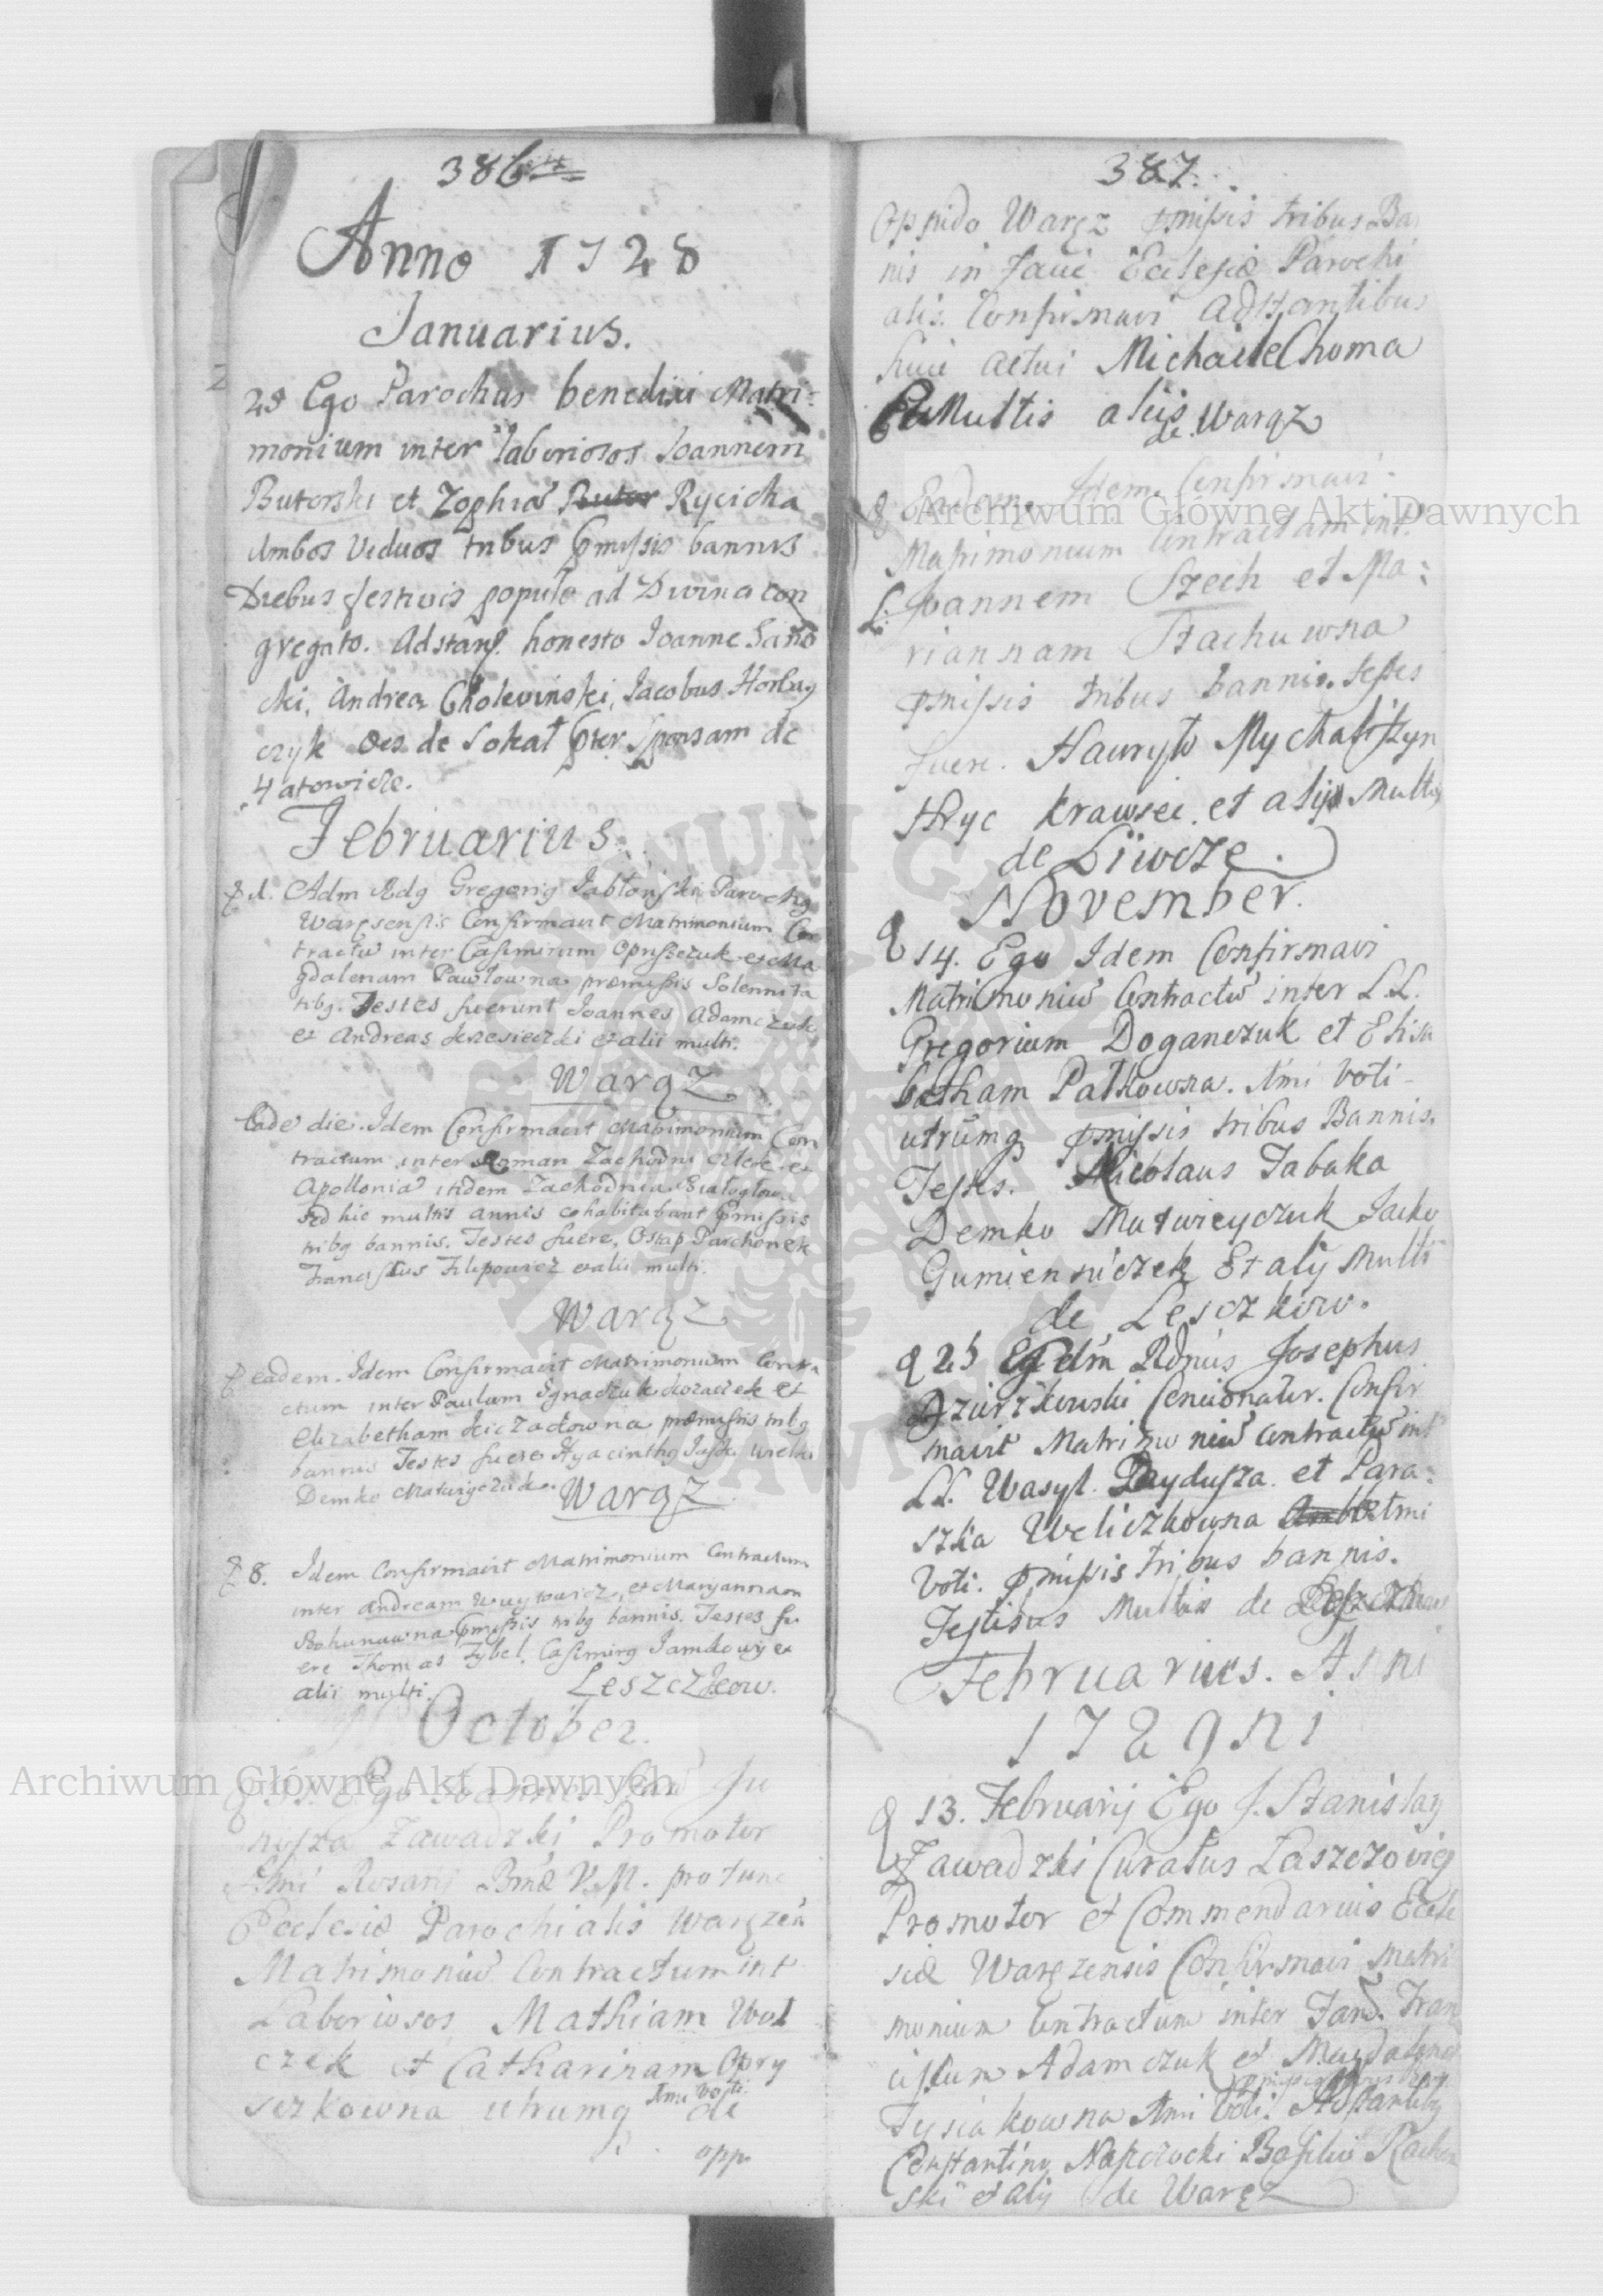 386
Anno 1728
Januarius.
28 Ego Parochus benedixi Matri-
monium inter laboriosos Joannem
Buterski et Zophiã Rycicha
Ambos Viduos tribus pmissis bannis
Diebus festivis populo ad Divina con
gregato. Adstant. honesto Joanne Sano
cki, Andrea Cholewinski, Jacobus Horbay
czyk Oes de Sokal pter Sponsam de
Febriuarius.
1. Adm Rdg Gregorig Jabłonski Parochg
Waręsensis Confirmavit Matrimonium Con
tractũ inter Casimirum Opryszczuk et Ma
gdalenam Pawłowna præmissis Solennita
tibg. Testes fuerunt Joannes Adamczuk
et Andreas et alii multi.
Waręz
Eadẽ die. Idem Confirmavit Matrimonium Con
tractum inter Roman Zachodni et
Apolloniã itidem Zachodnia
sed hic multis annis cohabitabant pmissis
tribg bannis. Testes fuere, Ostap Parchonek
Franciscus Filipowicz et alii multi.
Waręz
eadem. Idem Confirmavit Matrimonium Contra
ctum inter Paulum Ignaczuk Kozaczek et
Elizabetham Kiczadowna præmissis tribg
bannis Testes fuere Hyacinthg
Demko Matwiyczuk. Waręz
8. Idem Confirmavit Matrimonium Contractum
inter Andream Wuytowicz, et Maryannam
Bohunuwna pmissis tribg bannis. Testes fu
ere Thomas Zybel, Casimirg Jamkowy et
alii multi. Leszczkow.
October.
Ego Joannes
Zawadzki Promotor
Smi Rosarij Bmæ V. M. pro tunc
Ecclesiæ Parochialis Waręzen
Matrimoniũ Contractum int
Laboriosos Mathiam Wol
czek et Catharinam Opry
szkowna utrumq Ami Voti
de
opp
387.
Oppido Waręz pmissis tribus Ban
nis in facie Ecclesiæ Parochi
alis. Confirmavi Adstantibus
huic actui Michaele Choma
Et Multis aliis
de Waręz
Eadem Idem Confirmavi
Matrimonium Contractam int.
L. Joannem Szech et Ma:
riannam Stachuwna
pmissis tribus bannis. Testes
fuere. Hawryło Mychaliszyn
Hryc Krawiec. et alijs Multis
de Liwcze.
November.
14. Ego Idem Confirmavi
Matrimoniũ Contractũ inter L.L.
Gregorium Doganczuk et Elisa
betham Patkowna. Ami Voti
utrumq pmissis tribus Bannis.
Testes. Nicolaus Tabaka
Demko Matwieyczuk Jacko
Gumienniczek Et alij Multi
de Lesczkow.
25 Rdnus Josephus
Dziurzkowski Concionator. Confir
mavit Matrimoniũ Contractũ int
LL. Wasyl. Paydusza et Para:
szka Weliczkowna Ami
Voti. pmissis tribus bannis.
Testibus Multis de Leszczkow
Februarius. Anni
1729ni
13. Februarij Ego J. Stanislaus
Zawadzki Curatus Laszczovien
Promotor et Commendarius Eccle
siæ Waręzensis Confirmavi Matri
monium Contractum inter Fam. Fran
ciscum Adamczuk et Magdalenã
Fysiakowna Ami Voti. Adstantibg
Constantino Napczocki Basilio
ski et alij de Waręz
Archiwum Główne Akt Dawnych
Archiwum Główne Akt Dawnych